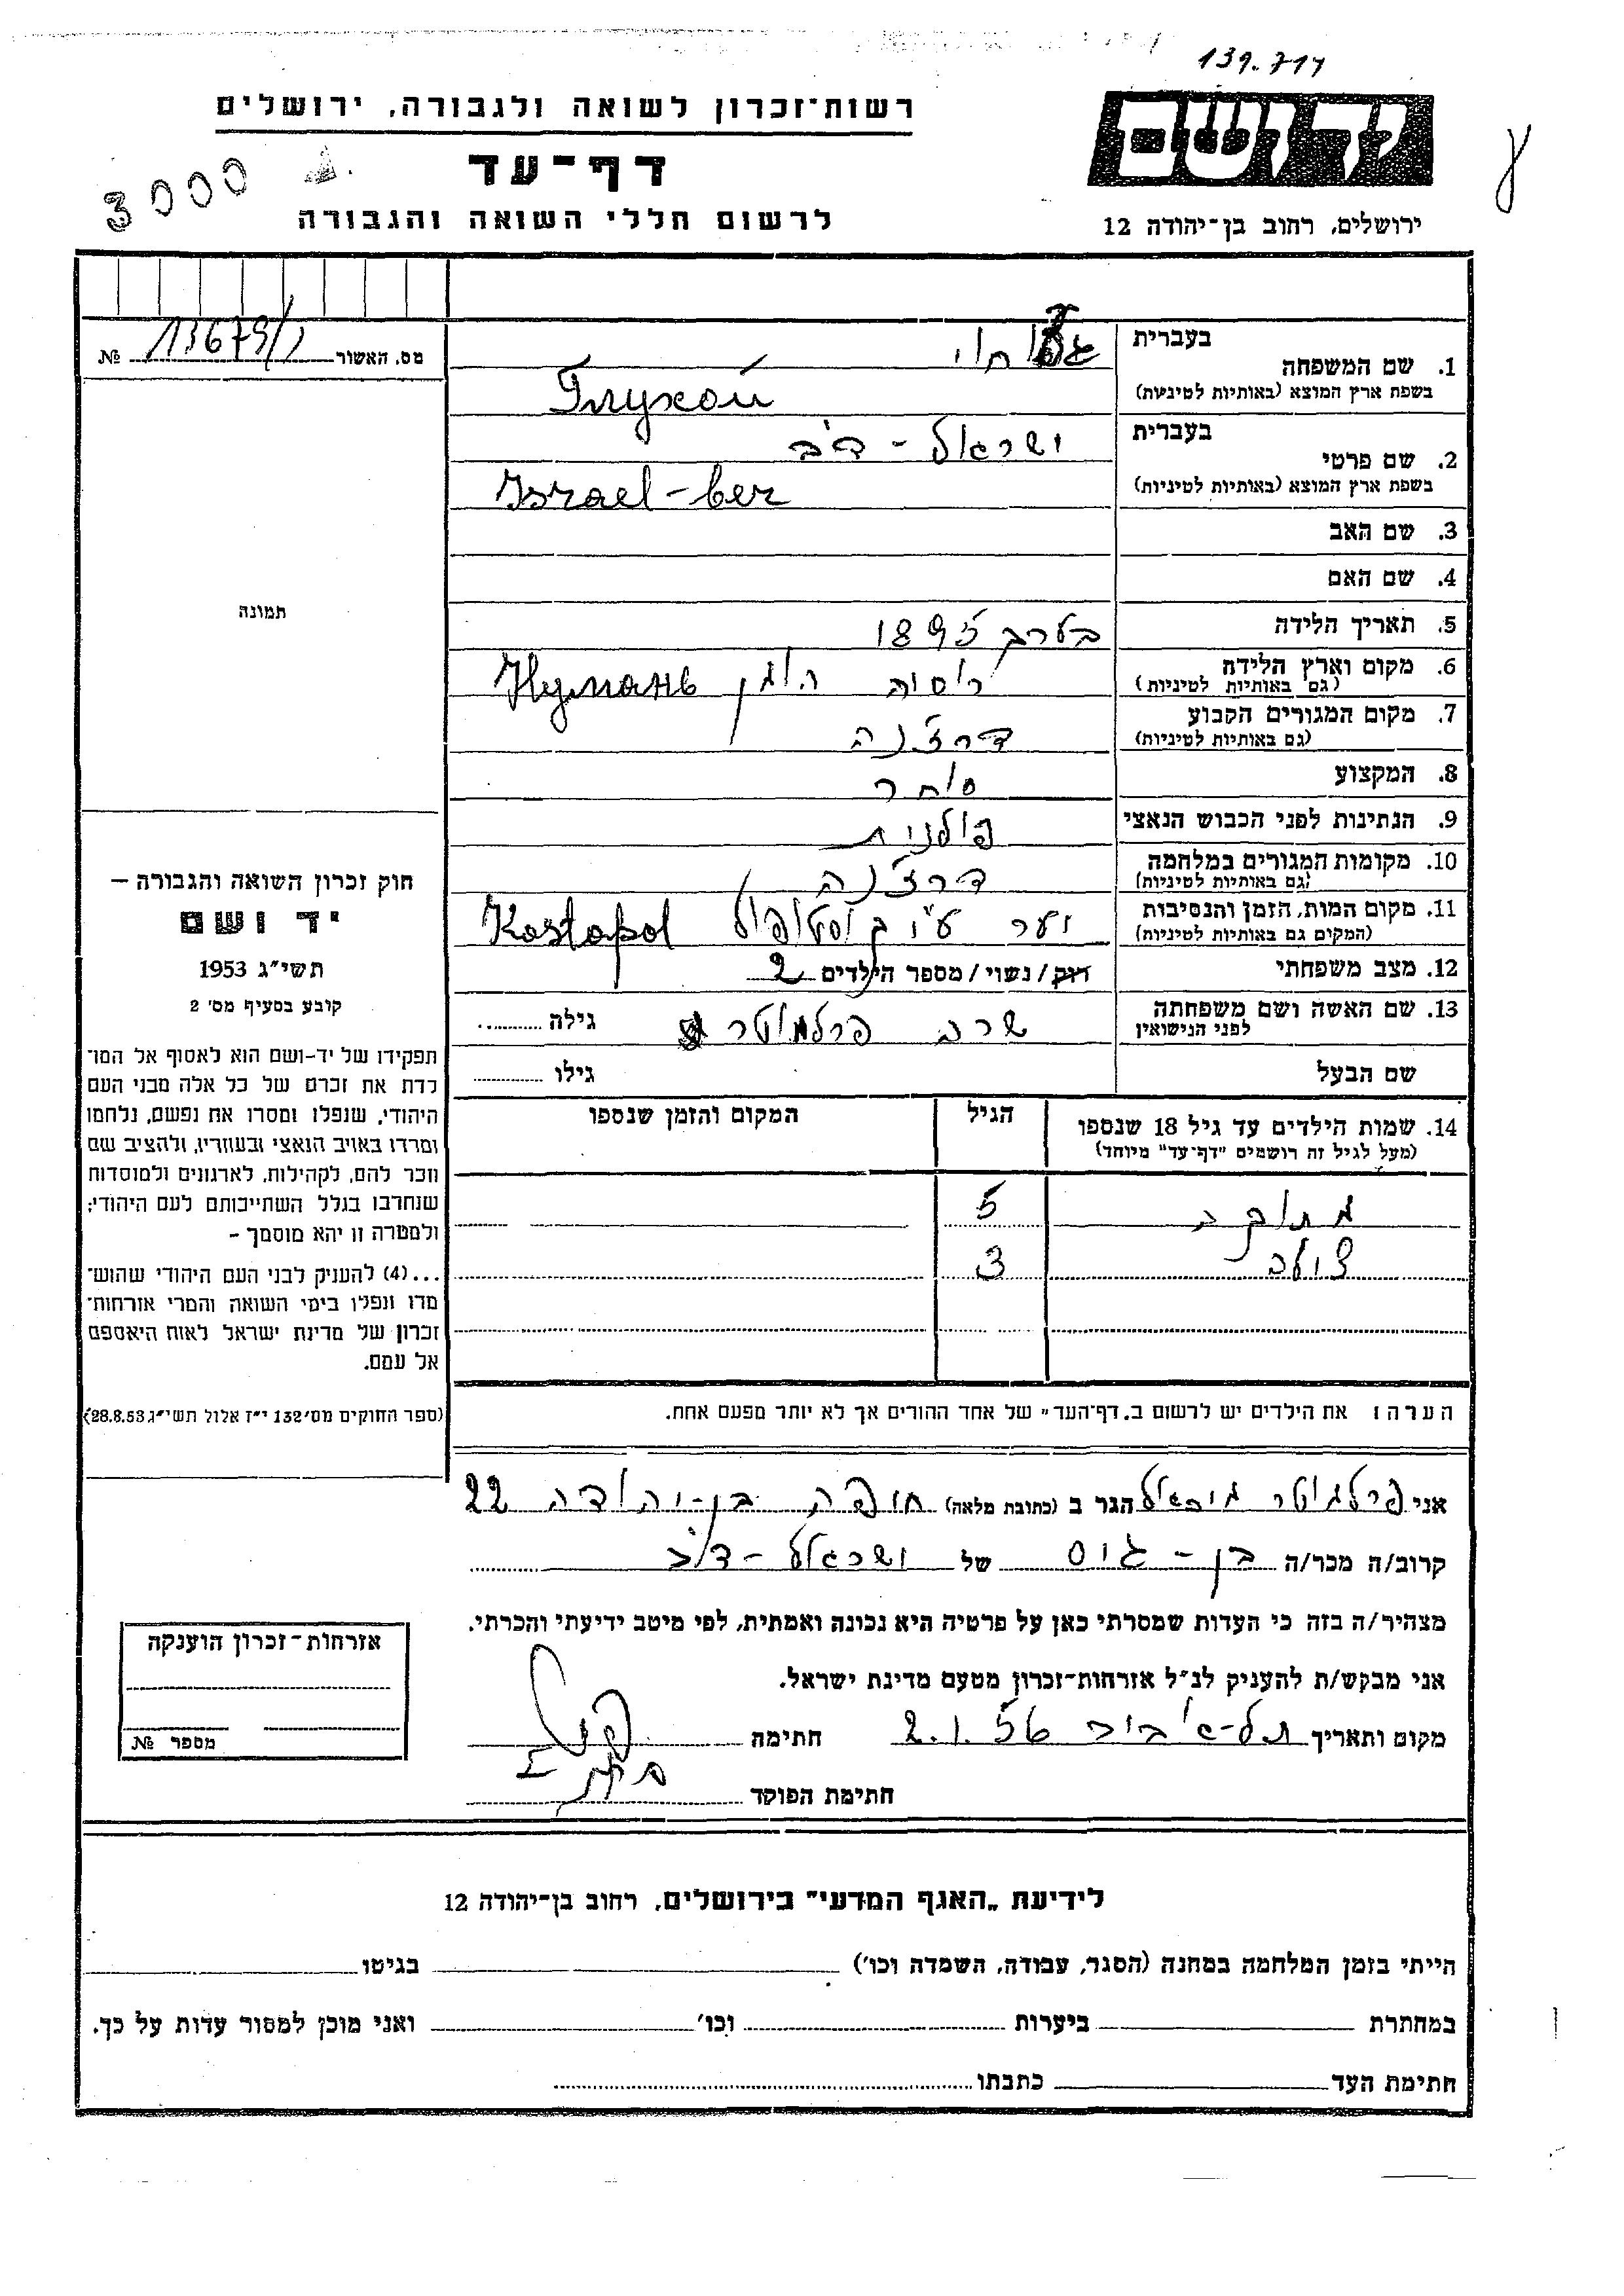 139.717
רשות־זכרון לשואה ולגבורה, ירושלים
יד ושם
דף־עד
3000
לרשום חללי השואה והגבורה
ירושלים, רחוב בן־יהודה 12
מס. האשור 13679/ №
בעברית
1. שם המשפחה
בשפת ארץ המוצא (באותיות לטיניות) Глухой
בעברית ישראל - דב
2. שם פרטי
בשפת ארץ המוצא (באותיות לטיניות) Israel-ber
3. שם האב
4. שם האם
תמונה
5. תאריך הלידה בערך 1895
6. מקום וארץ הלידה רוסיה
(גם באותיות לטיניות)
7. מקום המגורים הקבוע דרז'נה
(גם באותיות לטיניות)
8. המקצוע סוחר
9. הנתינות לפני הכבוש הנאצי פולנית
10. מקומות המגורים במלחמה דרז'נה
(גם באותיות לטיניות)
11. מקום המות, הזמן והנסיבות יער ע"י קוסטופול Kostopol
(המקום גם באותיות לטיניות)
12. מצב משפחתי רווק/נשוי/מספר הילדים 2
13. שם האשה ושם משפחתה שרה פרלמוטר גילה
לפני הנישואין
שם הבעל גילו
14. שמות הילדים עד גיל 18 שנספו הגיל המקום והזמן שנספו
(מעל לגיל זה רושמים "דף־עד" מיוחד)
5
3
הערה: את הילדים יש לרשום ב„דף־העד" של אחד ההורים אך לא יותר מפעם אחת.
חוק זכרון השואה והגבורה —
יד ושם
תשי"ג 1953
קובע בסעיף מס' 2
תפקידו של יד-ושם הוא לאסוף אל המו־
לדת את זכרם של כל אלה מבני העם
היהודי, שנפלו ומסרו את נפשם, נלחמו
ומרדו באויב הנאצי ובעוזריו, ולהציב שם
וזכר להם, לקהילות, לארגונים ולמוסדות
שנחרבו בגלל השתייכותם לעם היהודי;
ולמטרה זו יהא מוסמך -
...(4) להעניק לבני העם היהודי שהוש־
מדו ונפלו בימי השואה והמרי אזרחות־
זכרון של מדינת ישראל לאות היאספם
אל עמם.
(ספר החוקים מס' 132 י"ז אלול תשי"ג 28.8.53)
אני פרלמוטר מיכאל הגר ב (כתובת מלאה) חיפה בן-יהודה 22
קרוב/ה מכר/ה בן - גיס של ישראל - דב
מצהיר/ה בזה כי העדות שמסרתי כאן על פרטיה היא נכונה ואמתית, לפי מיטב ידיעתי והכרתי.
אני מבקש/ת להעניק לנ"ל אזרחות־זכרון מטעם מדינת ישראל.
מקום ותאריך תל-אביב 2.1.56 חתימה
חתימת הפוקד
אזרחות־זכרון הוענקה
מספר №
לידיעת „האגף המדעי" בירושלים, רחוב בן־יהודה 12
הייתי בזמן המלחמה במחנה (הסגר, עבודה, השמדה וכו') בגיטו
במחתרת ביערות וכו' ואני מוכן למסור עדות על כך.
חתימת העד כתבתו